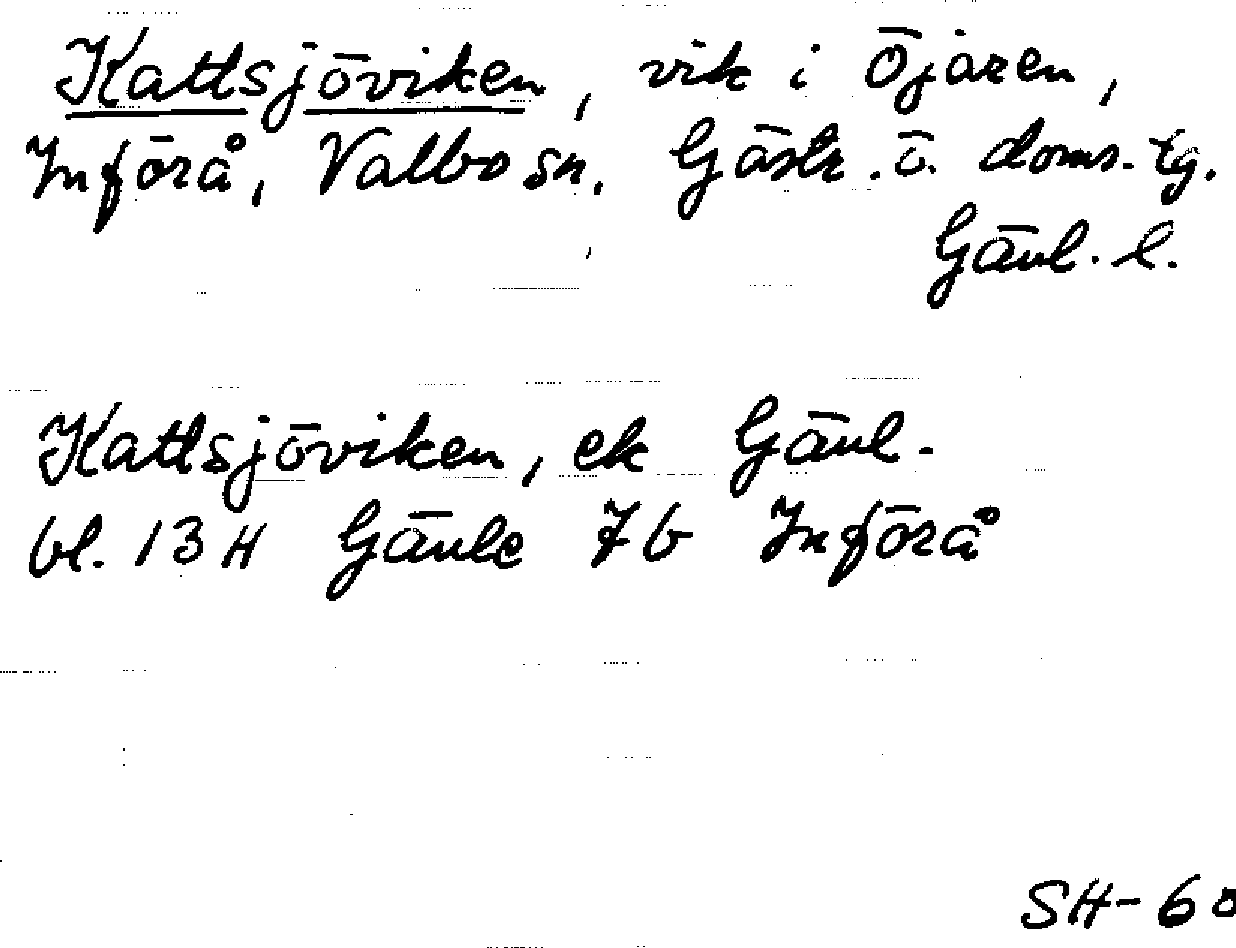 Kattsjöviken, vik i Öjaren,
Införå, Valbo sn, Gästr. ö. doms. tg.
Gävl. l.
Kattsjöviken, ek Gävl.
bl. 13 H Gävle 7b Införå
SH-60